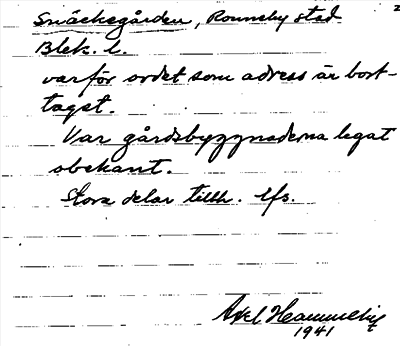 Snäckegården, Ronneby stad 2
Blek. l.
varför ordet som adress är bort-
taget.
Var gårdsbyggnaderna legat
obekant.
Stora delar tillh. Lfs.
Axel
1941